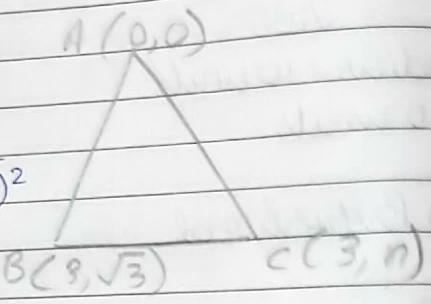 A (0,0)
)²
B(3,√3) C(3, n)